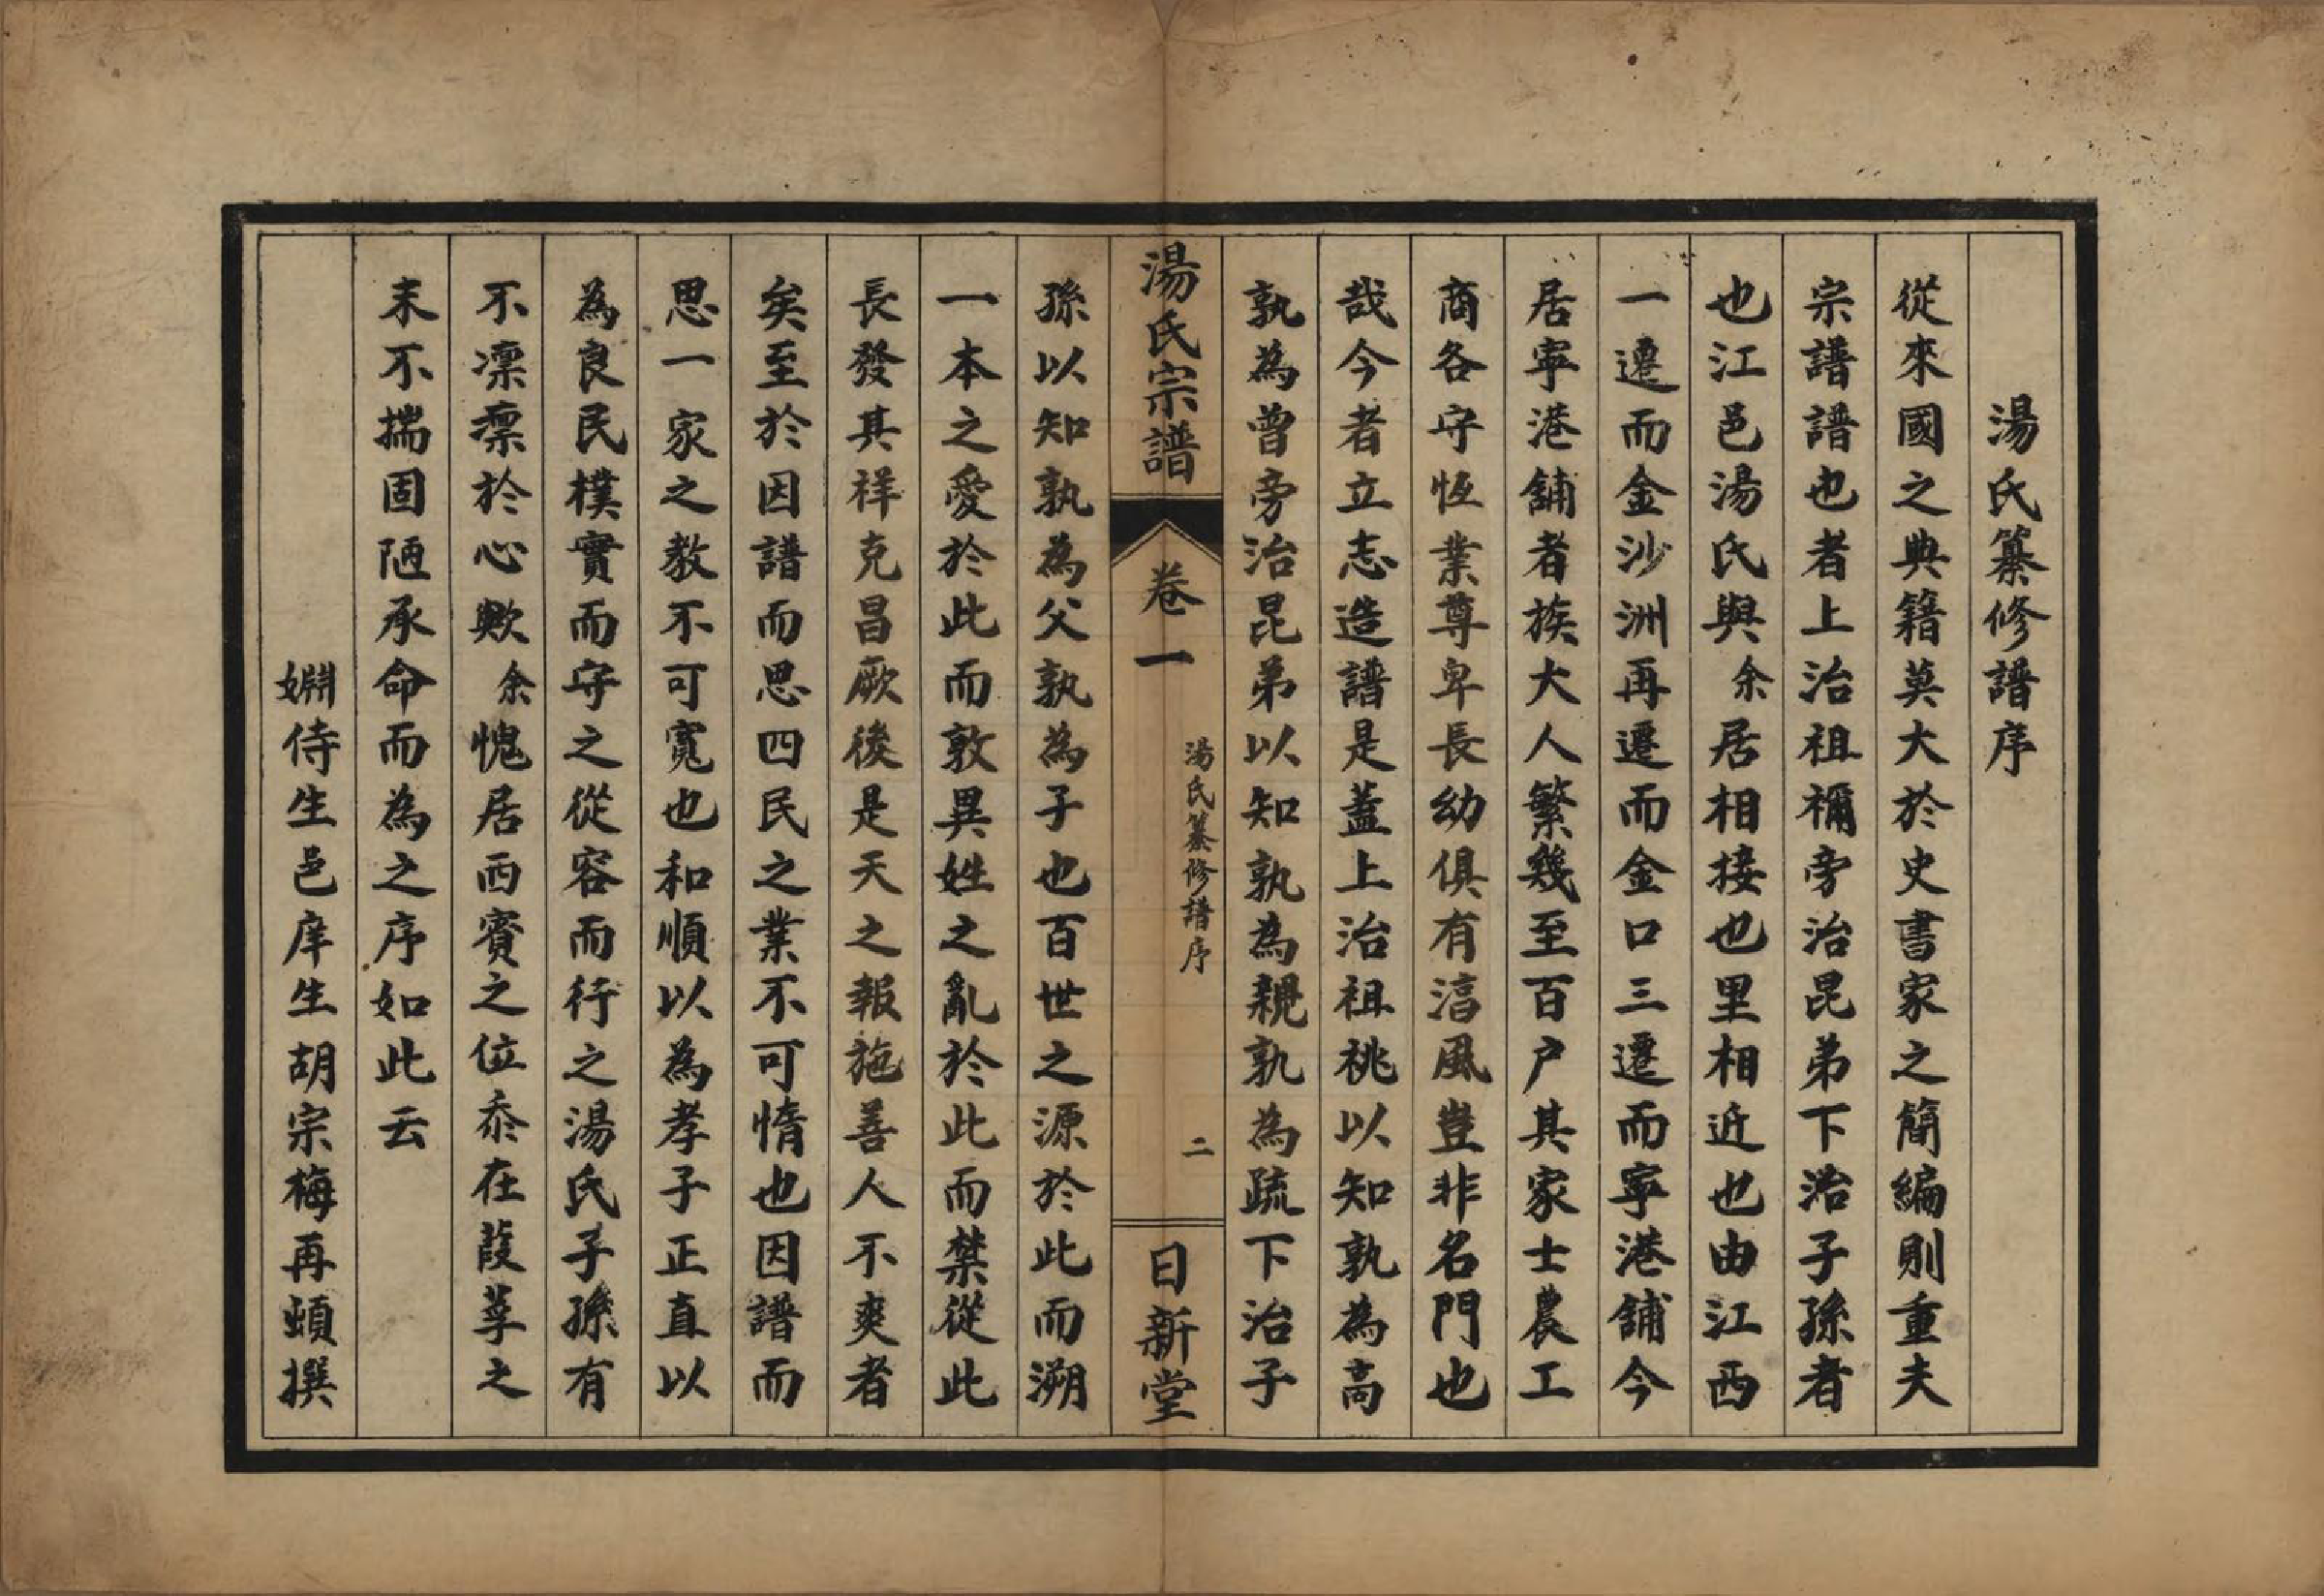 湯氏纂修譜序
從來國之典籍莫大於史書家之簡編則重夫
宗譜譜也者上治祖禰旁治昆弟下治子孫者
也江邑湯氏與余居相接也里相近也由江西
一遷而金沙洲再遷而金口三遷而寧港舖今
居寧港舖者族大人繁幾至百户其家士農工
商各守恆業尊卑長幼俱有湻風豈非名門也
哉今者立志造譜是蓋上治祖桃以知孰為高
孰為曾旁治昆弟以知孰為親孰為疏下治子
湯氏宗譜
卷一
湯氏纂修譜序
二
日新堂
孫以知孰為父孰為子也百世之源於此而溯
一本之愛於此而敦異姓之亂於此而禁從此
長發其祥克昌厥後是天之報施善人不爽者
矣至於因譜而思四民之業不可惰也因譜而
思一家之教不可寬也和順以為孝子正直以
為良民樸實而守之從容而行之湯氏子孫有
不凜凛於心歟余愧居西賓之位忝在葭莩之
末不揣固陋承命而為之序如此云
姻侍生邑庠生胡宗梅再頓撰